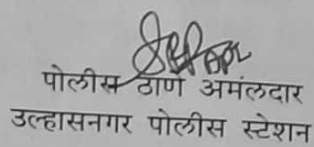 पोलीस ठाणे अमंलदार
उल्हासनगर पोलीस स्टेशन